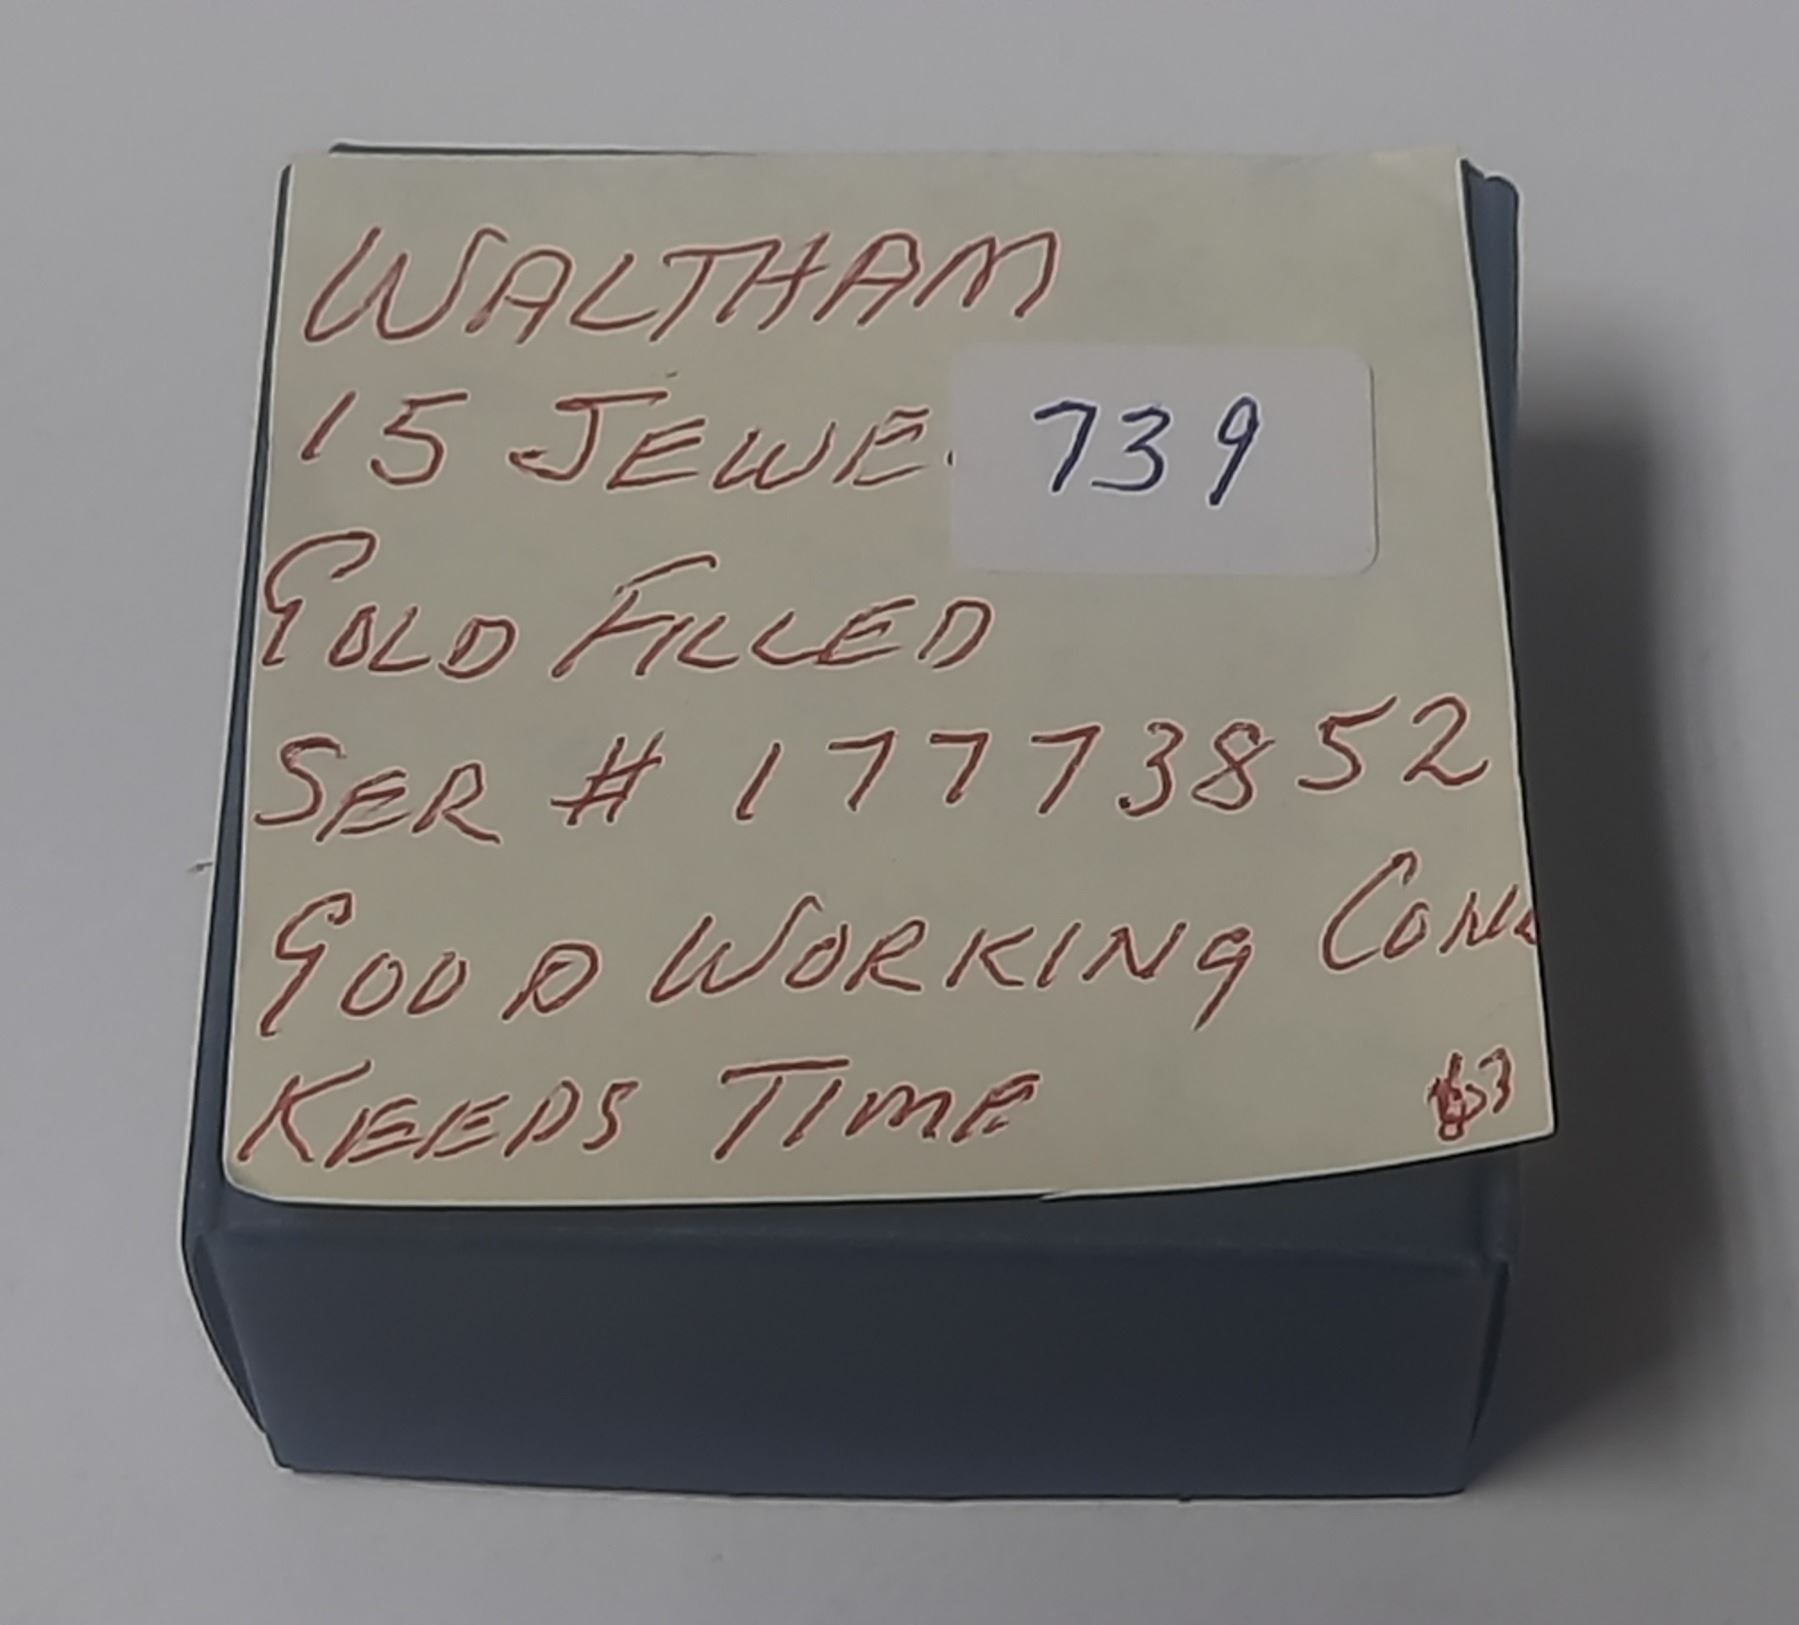 WALTHAM
15 JEWE
739
GOLD FILLED
SER # 17773852
GOOD WORKING CON
KEEPS TIME